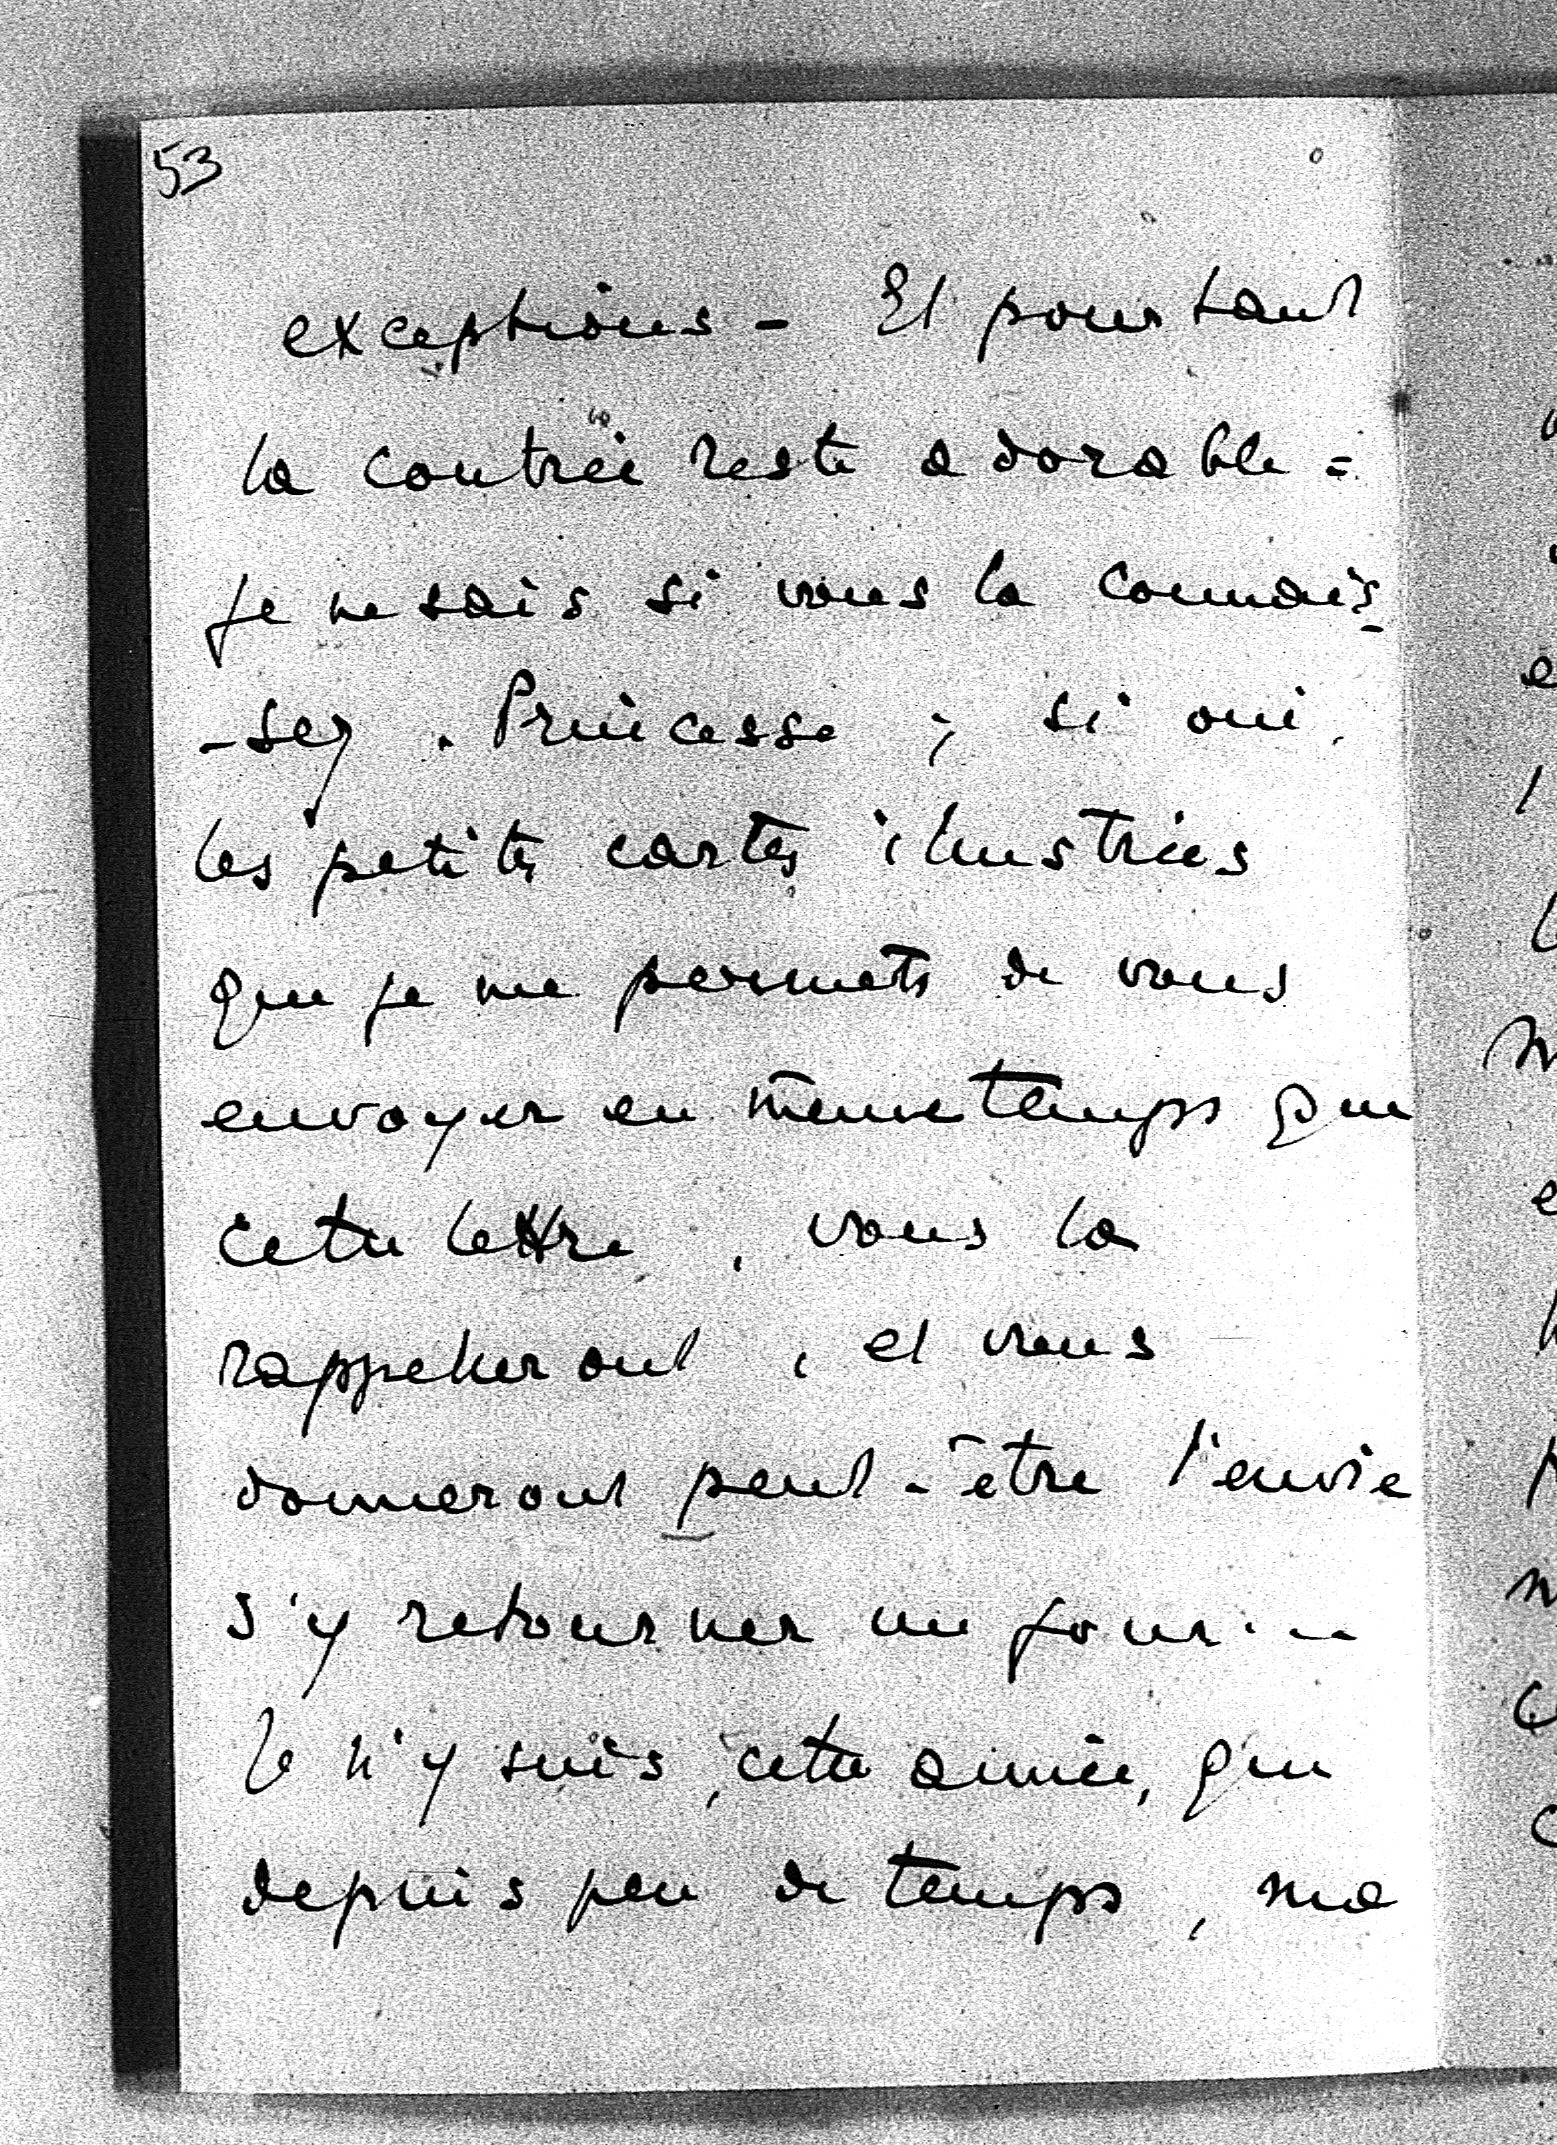 53
exceptions - Et pourtant
la contrée reste adorable -
je ne sais si vous la connais-
-sez. Princesse ; si oui,
les petites cartes illustrées
que je me permets de vous
envoyer en même temps que
cette lettre, vous la
rappelleront, et vous
donneront peut-être l'envie
d'y retourner un jour...
Je n'y suis, cette année, que
depuis peu de temps, ma